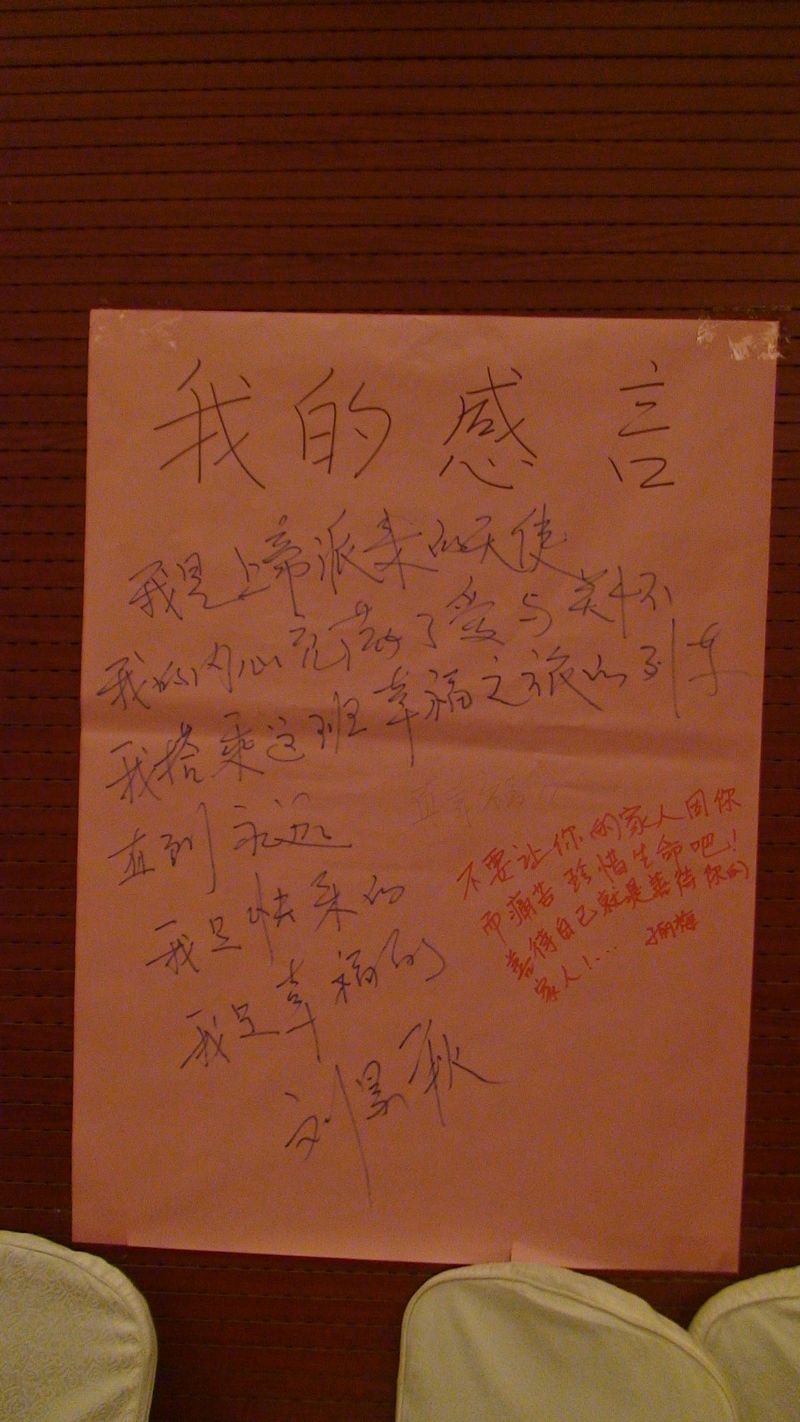 我的感言
我是上帝派来的天使
我的内心充满了爱与关怀
我搭乘这班幸福之旅的列车
直到永远
我是快乐的
我是幸福的
刘景秋
不要让你的家人因你
而痛苦 珍惜生命吧！
善待自己就是善待你的
家人！...